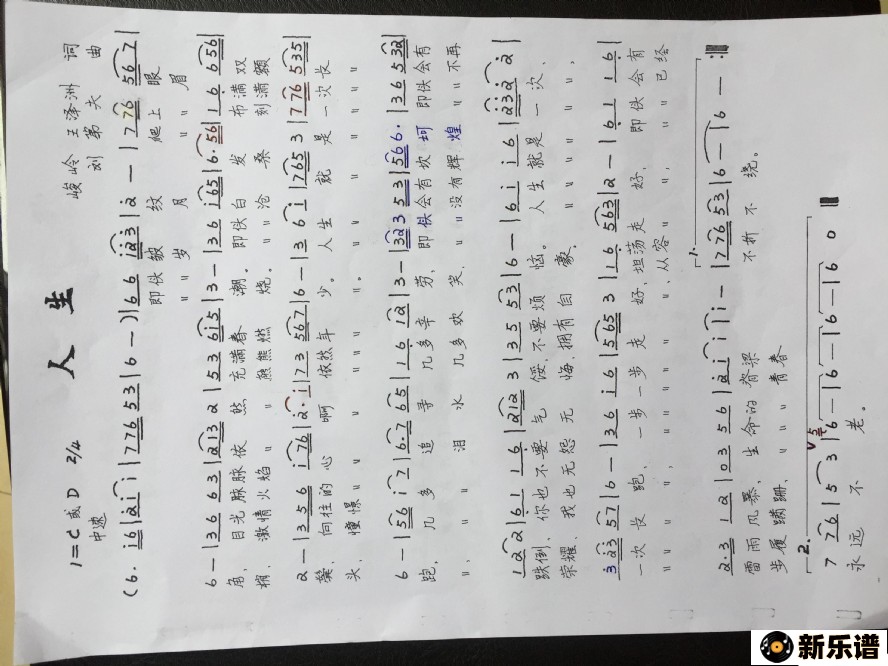 人生
峻岭 王泽洲 词
刘第夫 曲
1=C或D 2/4
中速
(6. i6|2 i i|776 53|6 -)|66 123|2 -|7 76 567|
即使皱纹爬上眼
〃〃岁月〃〃眉
6 -|36 63|213 2|53 615|3 -|36 i65|6.56|16 656|
角，目光脉脉依然充满春潮。即使白发布满双
梢，激情火焰〃〃熊熊燃烧。〃〃沧桑刻满额
2 -|356 i76|2.i|73 567|6 -|36 i|7653|776 535|
鬓，向往的心啊依然年少。人生就是一次长
头，憧憬〃〃〃〃〃〃〃。〃〃〃〃〃〃〃
6 -|56 i7|6.765|16 12|3 -|323 53|566.|36 532|
跑，几多追寻几多辛劳，即使会有坎坷即使会有
〃、〃〃泪水几多欢笑，〃〃没有辉煌〃〃不再
122|61 16|212 3|35 53|6 -|6i i6|2322|
跌倒、你也不要气馁、不要烦恼。人生就是一次、
荣耀、我也无怨无悔、拥有自豪，〃〃〃〃〃〃、
323 57|6 -|36 i6|5653|16 563|2 -|61 16|
一次长跑，一步一步走好、坦荡走好，即使会有
〃〃〃〃，〃〃〃〃〃〃、从容〃〃，〃〃已经
2.3 12|03 56|2 i i|i -|776 53|6 -|6 -:|
雷雨风暴，生命的脊梁不折不绕。
步履蹒跚、〃〃〃青春
1.
2.
7 76|5 3|6 -|6 -|6 -|6 0
永远不老。
新乐谱